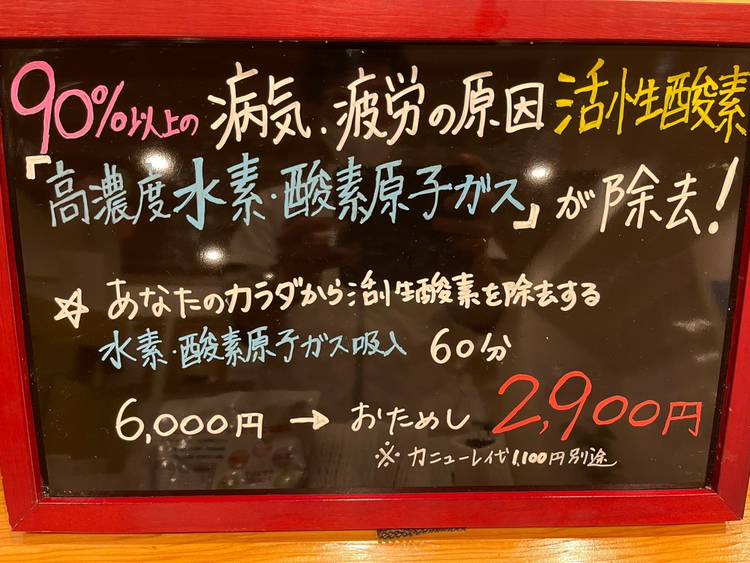 90%以上の病気・疲労の原因活性酸素
「高濃度水素・酸素原子ガス」が除去!
☆ あなたのカラダから活性酸素を除去する
水素・酸素原子ガス吸入 60分
6,000円 → おためし 2,900円
※カニューレ代1,100円別途